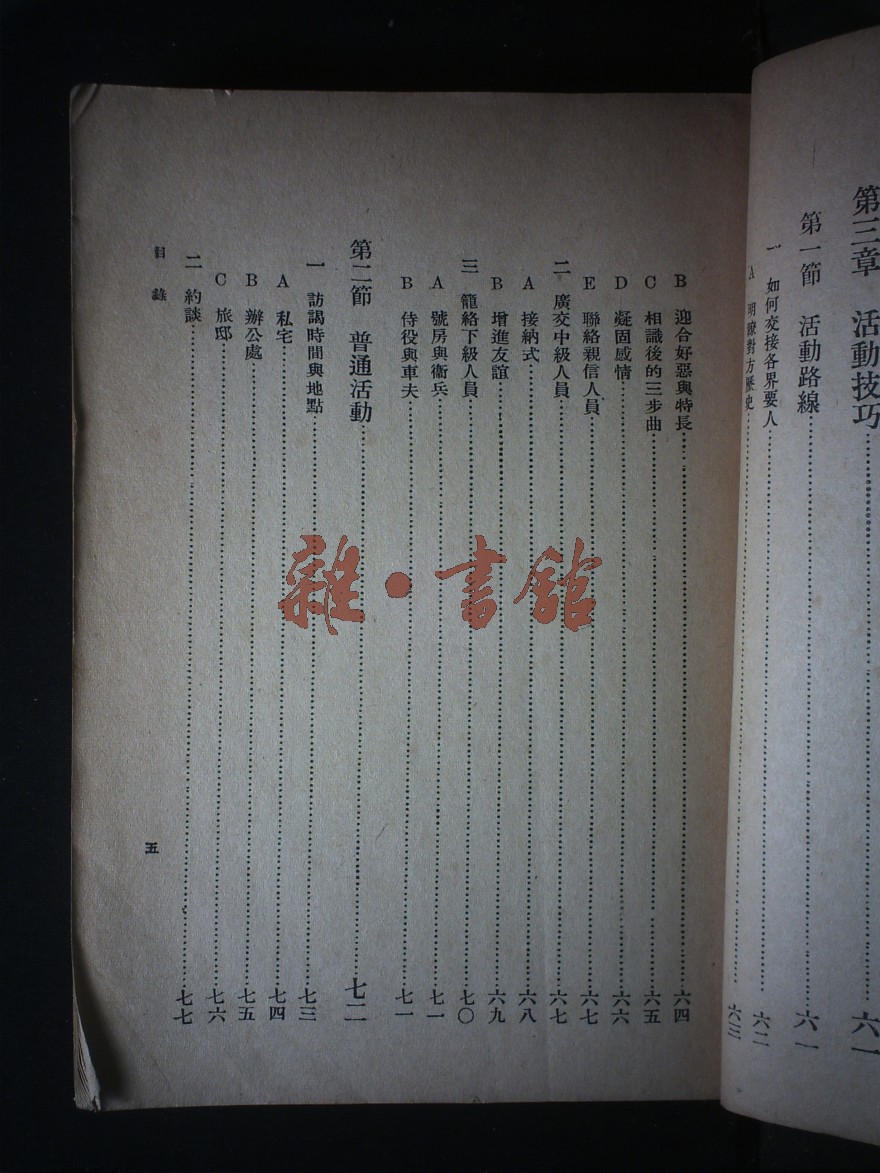 第三章 活動技巧……六一
第一節 活動路線……六一
一 如何交接各界要人……六二
A 明瞭對方歷史……六三
B 迎合好惡與特長……六四
C 相識後的三步曲……六五
D 凝固感情……六六
E 聯絡親信人員……六七
二 廣交中級人員……六七
A 接納式……六八
B 增進友誼……六九
三 籠絡下級人員……七〇
A 號房與衞兵……七一
B 侍役與車夫……七一
第二節 普通活動……七二
一 訪謁時間與地點……七三
A 私宅……七四
B 辦公處……七五
C 旅邸……七六
二 約談……七七
目錄
五
雜·書館